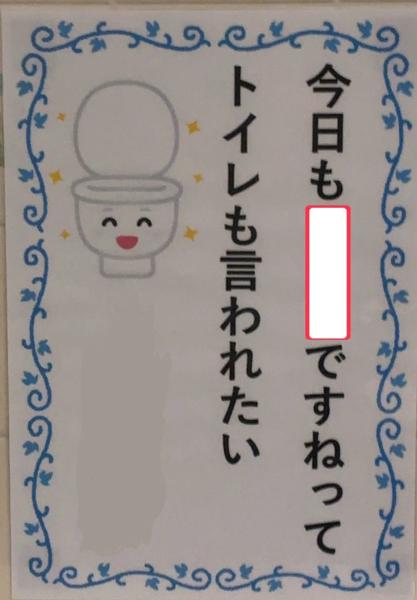 今日も
ですねって
トイレも言われたい